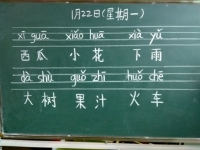 1月22日(星期一)
xī guā xiǎo huā xià yǔ
西瓜 小花 下雨
dà shù guǒ zhī huǒ chē
大树 果汁 火车